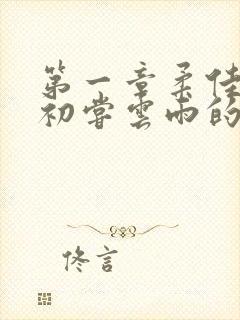 第一章柔佳
初尝云雨的
佟言